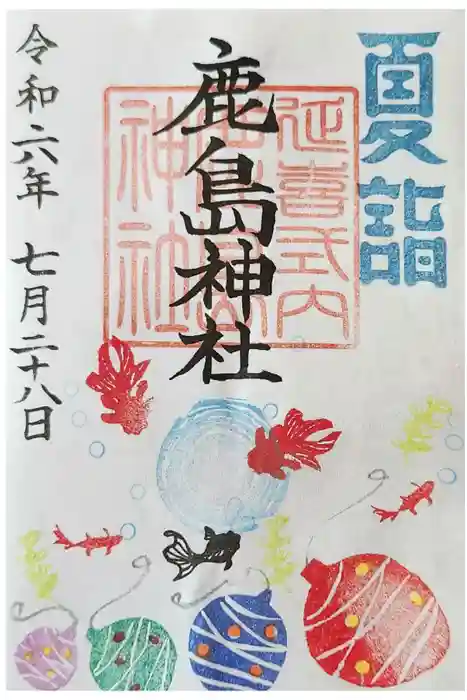 夏詣
延喜式内
鹿島神社
鹿島神社
令和六年 七月二十八日